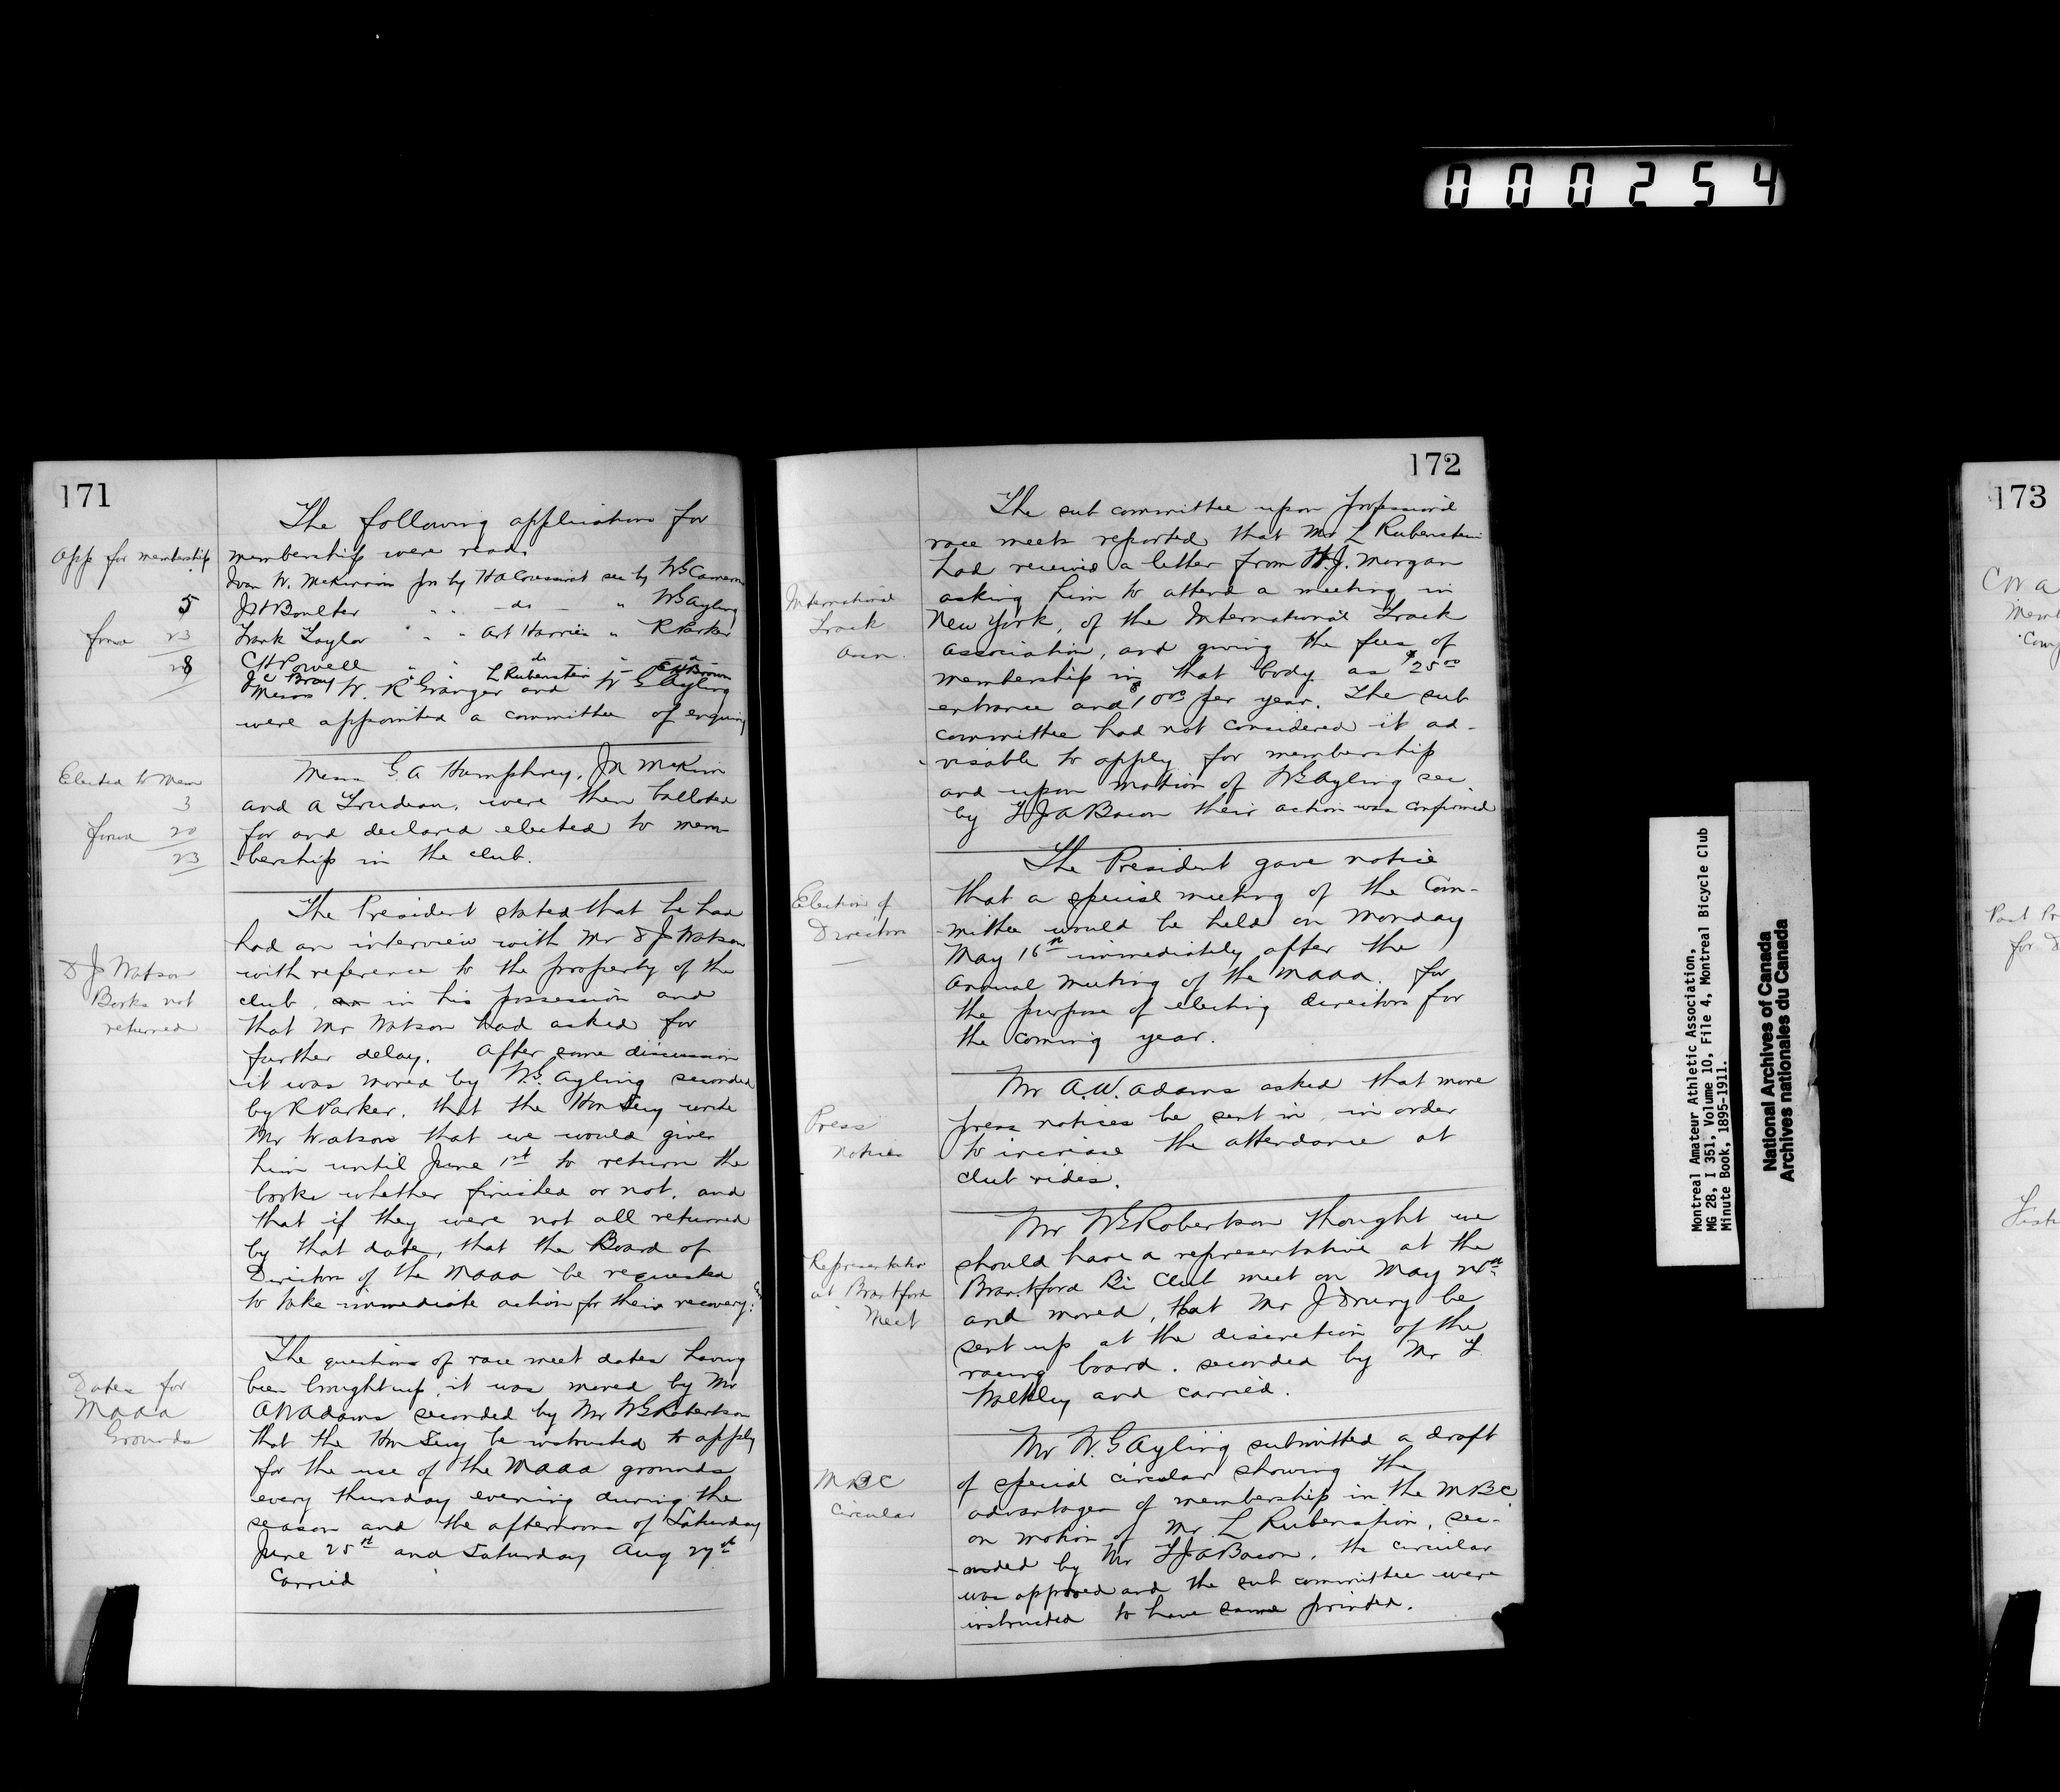 000254
171
The following applications for
App for membership
membership were read.
Ivan W. McKinnin pro by H A Coussirat sec by W S Cameron
5
J H Boulter " " - do - " W G Ayling
forw 23
Frank Taylor " " Art Harries " R Parker
28
C H Powell " " do " - do -
J C Bray " " L Rubenstein " E W Brown
Messrs W. R Granger and W G Ayling
were appointed a committee of enquiry
Elected to Mem
3
forw 20
23
Messrs G. A Humphrey, J M McKim
and A Trudeau, were then balloted
for and declared elected to mem-
-bership in the club.
D J Watson
Books not
returned
The President stated that he had
had an interview with Mr D J Watson
with reference to the property of the
club, in his possession and
that Mr Watson had asked for
further delay. After some discussion
it was moved by W.G. Ayling seconded
by R Parker. that the Hon Secy write
Mr Watson that we would give
him until June 1st to return the
books whether finished or not, and
that if they were not all returned
by that date, that the Board of
Directors of the MAAA be requested
to take immediate action for their recovery.
Dates for
MAAA
Grounds
The questions of race meet dates having
been brought up, it was moved by Mr
A W Adams seconded by Mr W G Robertson
that the Hon Secy be instructed to apply
for the use of the MAAA grounds
every thursday evening during the
season and the afternoons of Saturday
June 25th and Saturday Aug 27th
Carried
172
The sub committee upon professional
race meets reported that Mr L Rubenstein
had received a letter from H.J. Morgan
International
Track
Assn.
asking him to attend a meeting in
New York, of the International Track
Association, and giving the fees of
membership in that body as $25.00
entrance and $10.00 per year. The sub
committee had not considered it ad-
-visable to apply for membership
and upon motion of W G Ayling sec
by F J A Bacon their action was confirmed
Election of
Directors
The President gave notice
that a special meeting of the Com-
-mittee would be held on Monday
May 16th immediately after the
annual meeting of the MAAA. for
the purpose of electing directors for
the coming year.
Press
notices
Mr A.W. Adams asked that more
press notices be sent in, in order
to increase the attendance at
club rides.
Representative
at Brantford
Meet
Mr W G Robertson thought we
should have a representative at the
Brantford Bi Club meet on May 24th
and moved, that Mr J Drury be
sent up at the discretion of the
racing board. seconded by Mr F
Walkley and carried.
MBC
Circular
Mr W. G Ayling submitted a draft
of special circular showing the
advantages of membership in the MBC
on motion of Mr. L Rubenstein, sec-
-onded by Mr F J A Bacon, the circular
was approved and the sub committee were
instructed to have same printed.
Montreal Amateur Athletic Association,
MG 28, I 351, Volume 10, File 4, Montreal Bicycle Club
Minute Book, 1895-1911.
National Archives of Canada
Archives nationales du Canada
173
C W A